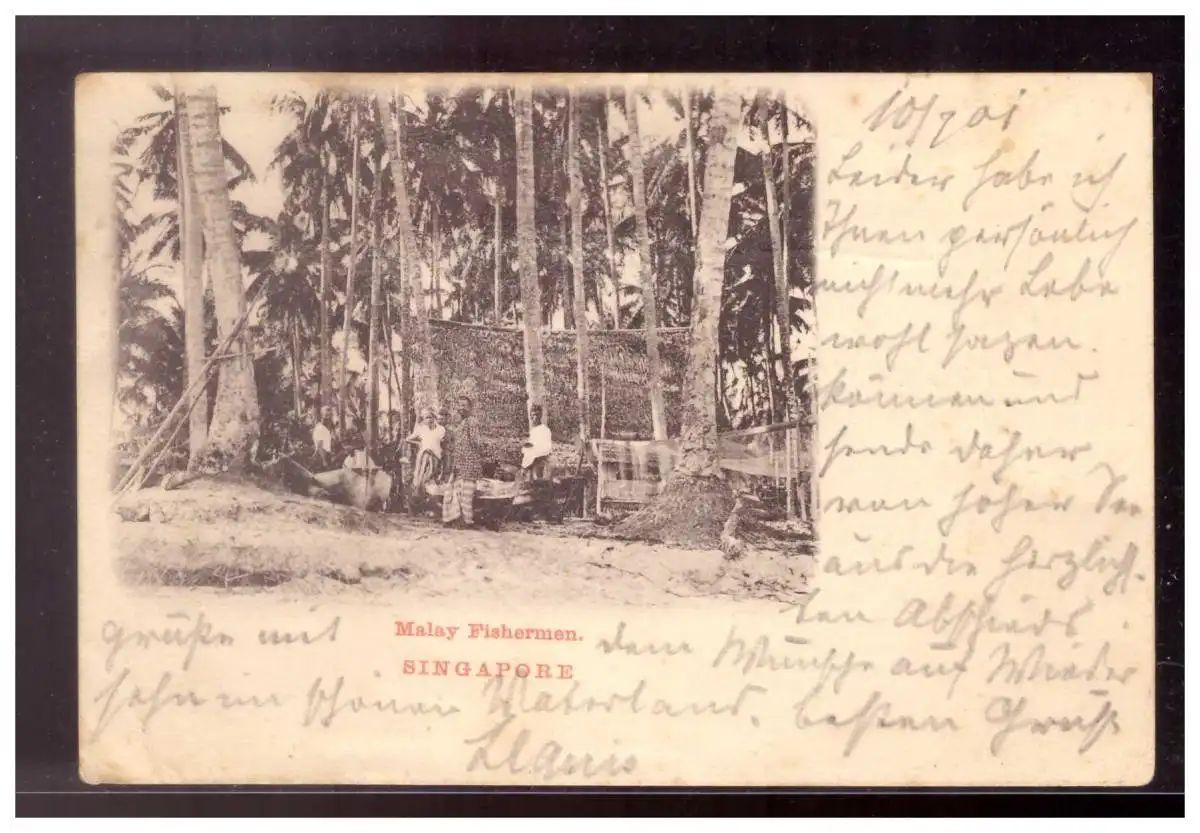 10/7 01
Leider habe ich
Ihnen persönlich
nicht mehr Lebe
wohl sagen
können und
sende daher
von hoher See
aus die herzlich-
sten Abschieds
grüße mit
Malay Fishermen.
dem Wunsche auf Wieder
SINGAPORE
sehn im schönen Vaterland. besten Gruß